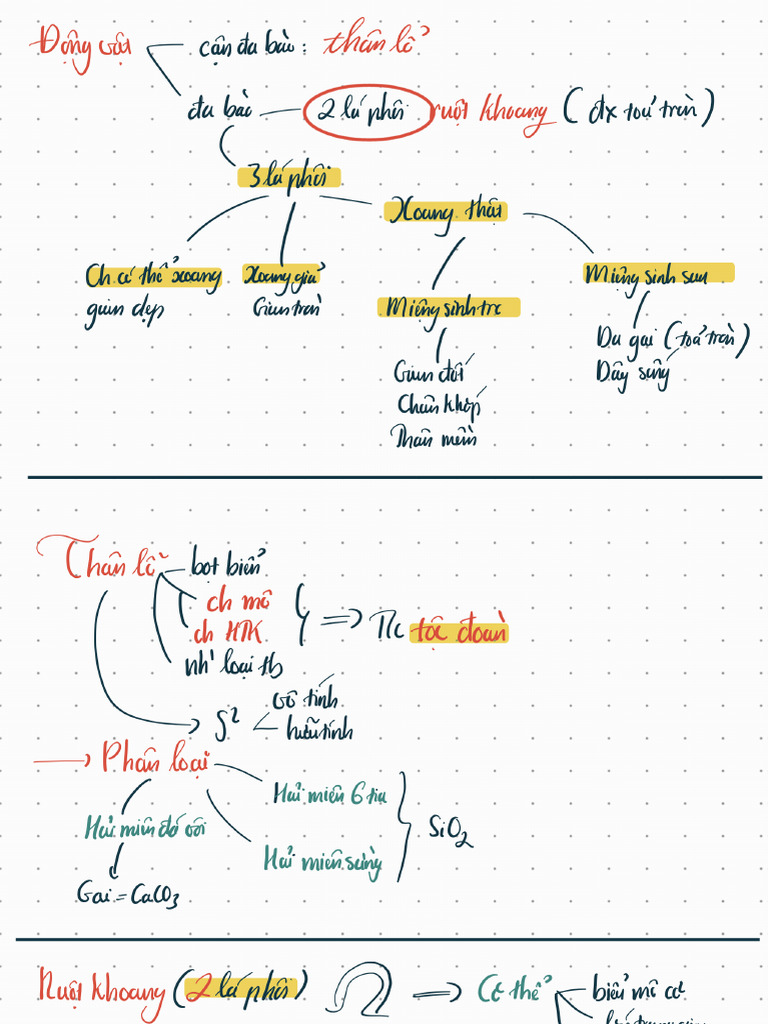 Động vật
cận đa bào: thân lỗ
đa bào 2 lá phôi ruột khoang (đx toả tròn)
3 lá phôi
Xoang thật
Ch. có thể xoang Xoang giả Miệng sinh sau
giun dẹp Giun tròn Miệng sinh trc
Da gai (toả tròn)
Giun đốt Dây sống
Chân khớp
Thân mềm
Thân lỗ bọt biển
ch mô
ch HTK => Tc tộc đoàn
nh' loại tb
vô tính
S² hữu tính
Phân loại
Hải miên 6 tia
Hải miên đá vôi SiO2
Hải miên sừng
Gai = CaCO3
Ruột khoang (2 lá phôi) => Cơ thể biểu mô cơ